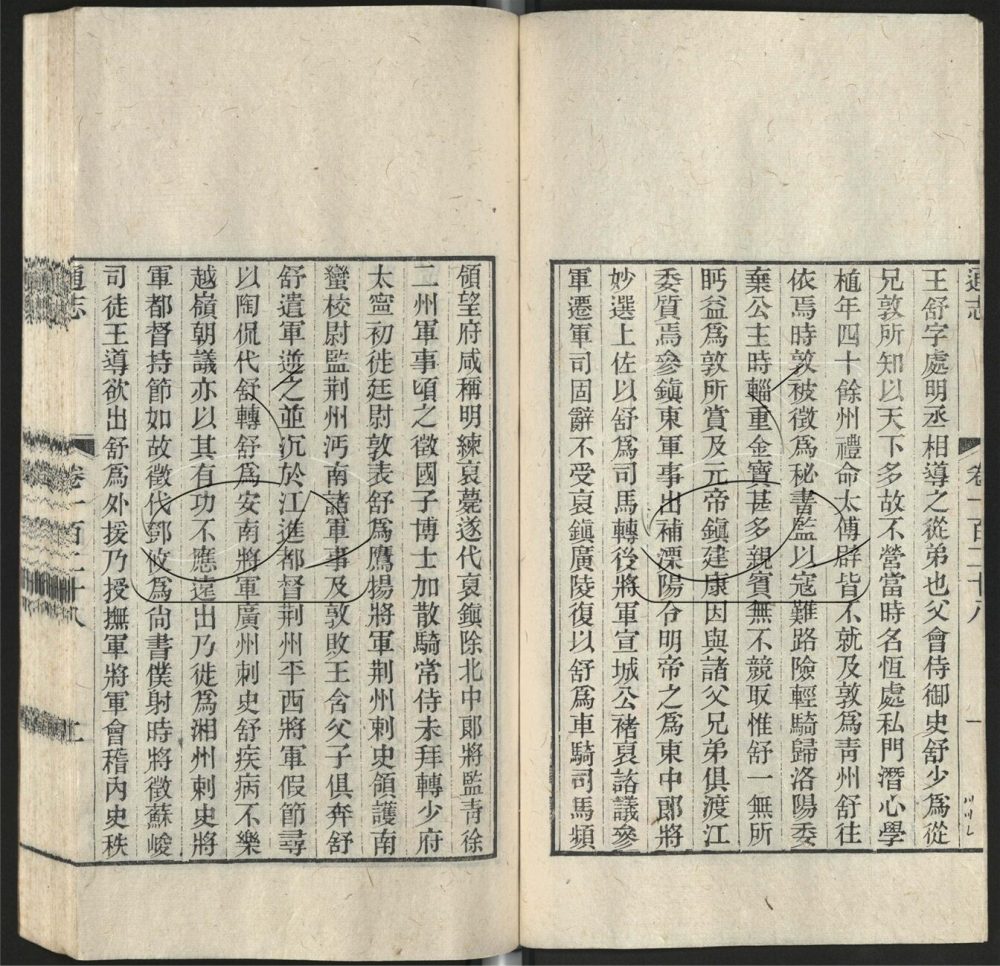 通志
卷一百二十八
一
王舒字處明丞相導之從弟也父會侍御史舒少爲從
兄敦所知以天下多故不營當時名恆處私門潛心學
植年四十餘州禮命太傅辟皆不就及敦爲青州舒往
依焉時敦被徵爲秘書監以寇難路險輕騎歸洛陽委
棄公主時輜重金寶甚多親賓無不競取惟舒一無所
眄益爲敦所賞及元帝鎮建康因與諸父兄弟俱渡江
委質焉參鎮東軍事出補溧陽令明帝之爲東中郎將
妙選上佐以舒爲司馬轉後將軍宣城公褚裒諮議參
軍遷軍司固辭不受裒鎮廣陵復以舒爲車騎司馬頻
領望府咸稱明練裒薨遂代裒鎮除北中郎將監青徐
二州軍事頃之徵國子博士加散騎常侍未拜轉少府
太寧初徙廷尉敦表舒爲鷹揚將軍荆州刺史領護南
蠻校尉監荆州沔南諸軍事及敦敗王含父子俱奔舒
舒遣軍逆之並沉於江進都督荆州平西將軍假節尋
以陶侃代舒轉舒爲安南將軍廣州刺史舒疾病不樂
越嶺朝議亦以其有功不應遠出乃徙爲湘州刺史將
軍都督持節如故徵代鄧攸爲尚書僕射時將徵蘇峻
司徒王導欲出舒爲外援乃授撫軍將軍會稽內史秩
通志
卷一百二十八